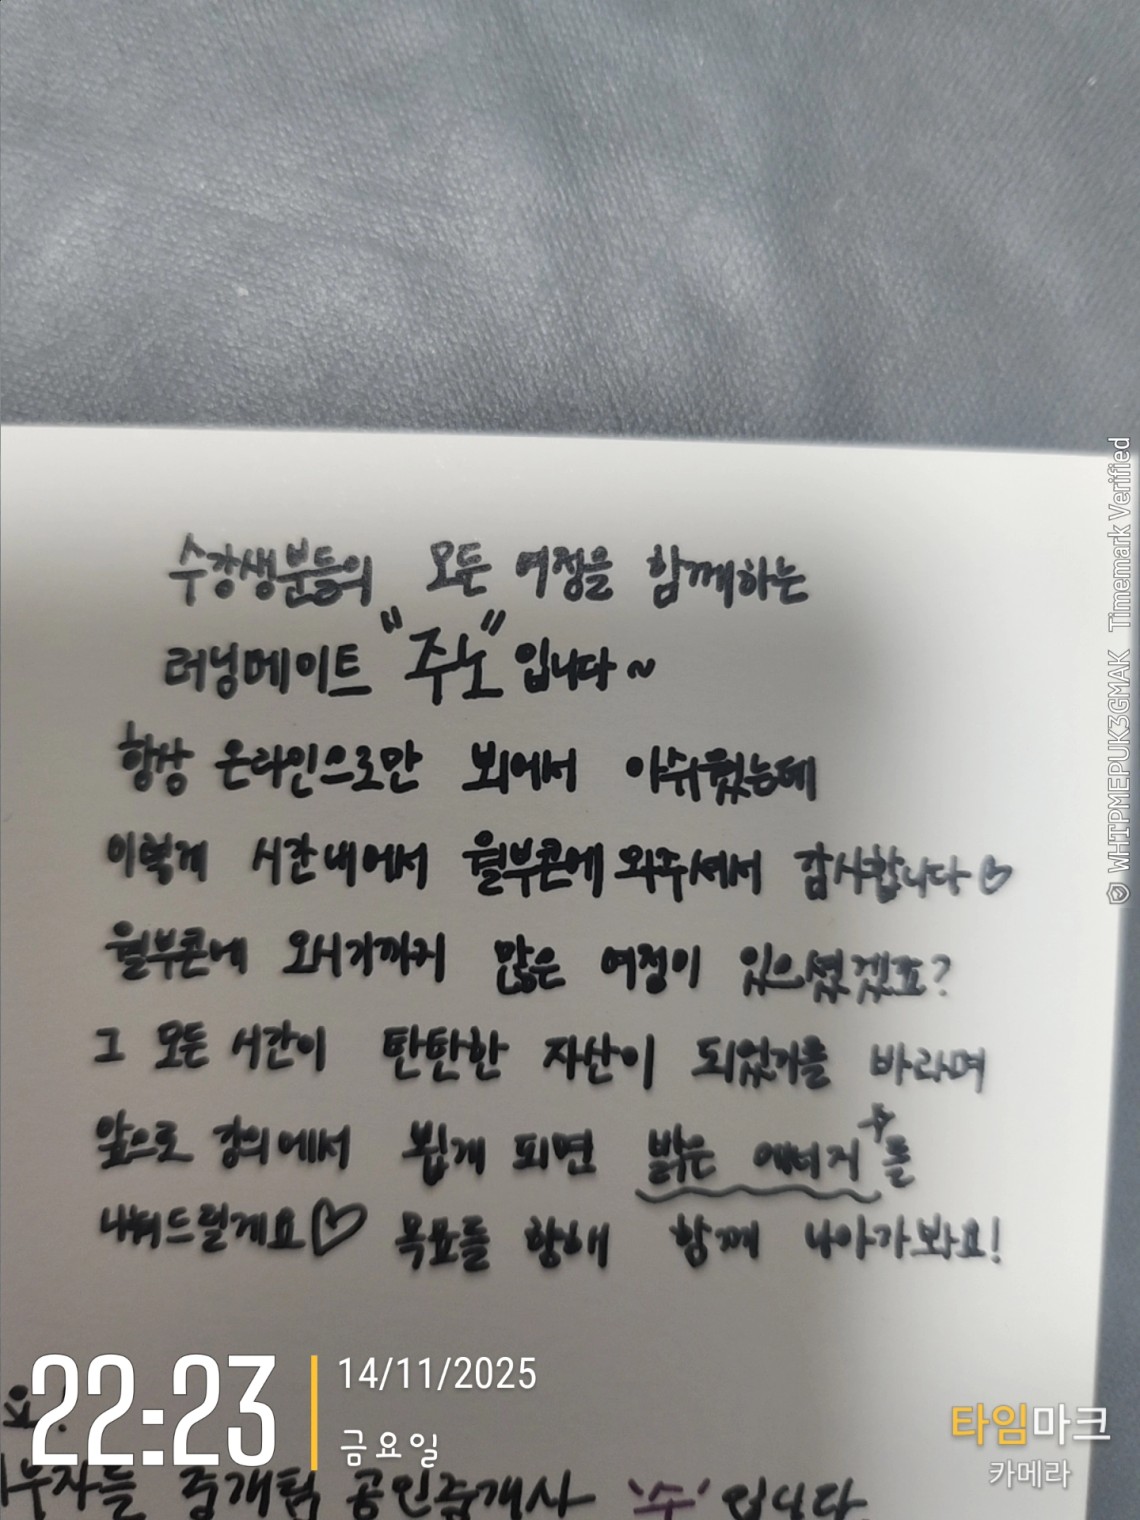 수강생분들의 모든 여정을 함께하는
러닝메이트 "주노" 입니다~
항상 온라인으로만 뵈어서 아쉬웠는데
이렇게 시간내어서 월부콘에 와주셔서 감사합니다♡
월부콘에 오시기까지 많은 여정이 있으셨겠죠?
그 모든 시간이 탄탄한 자산이 되었기를 바라며
앞으로 강의에서 뵙게 되면 밝은 에너지☆를
나눠드릴게요♡ 목표를 향해 함께 나아가봐요!
요!
중개팀 공인중개사 '수' 입니다.
22:23
14/11/2025
금요일
타임마크
카메라
© WHIPMEPUK3GMAK Timemark Verified